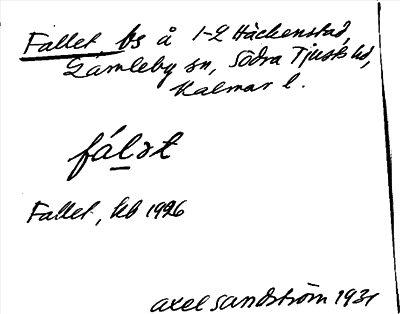 Fallet bs å 1-2 Häckenstad,
Gamleby sn, Södra Tjusts hd,
Kalmar l.
fálət
Fallet, kb 1926
Axel Sandström 1931